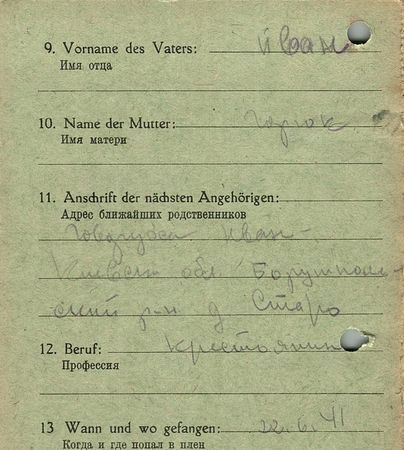 9. Vorname des Vaters: Иван
Имя отца
10. Name der Mutter: Горпок
Имя матери
11. Anschrift der nächsten Angehörigen:
Адрес ближайших родственников
Иван-
Киевск обл Борушполь-
ский р-н д Старо
12. Beruf: крестьянин
Профессия
13 Wann und wo gefangen: 22.6.41
Когда и где попал в плен